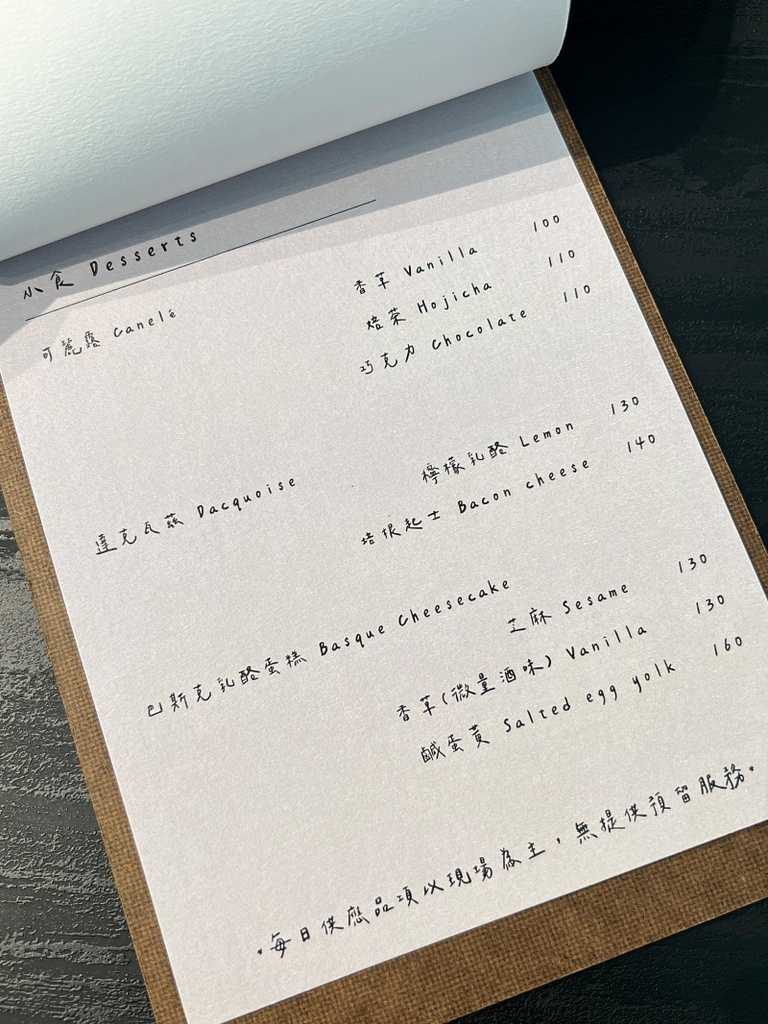 小食 Desserts
可麗露 Canelé
香草 Vanilla 100
焙茶 Hojicha 110
巧克力 Chocolate 110
達克瓦茲 Dacquoise
檸檬乳酪 Lemon 130
培根起士 Bacon cheese 140
巴斯克乳酪蛋糕 Basque Cheesecake
芝麻 Sesame 130
香草(微量酒味) Vanilla 130
鹹蛋黃 Salted egg yolk 160
•每日供應品項以現場為主，無提供預留服務•